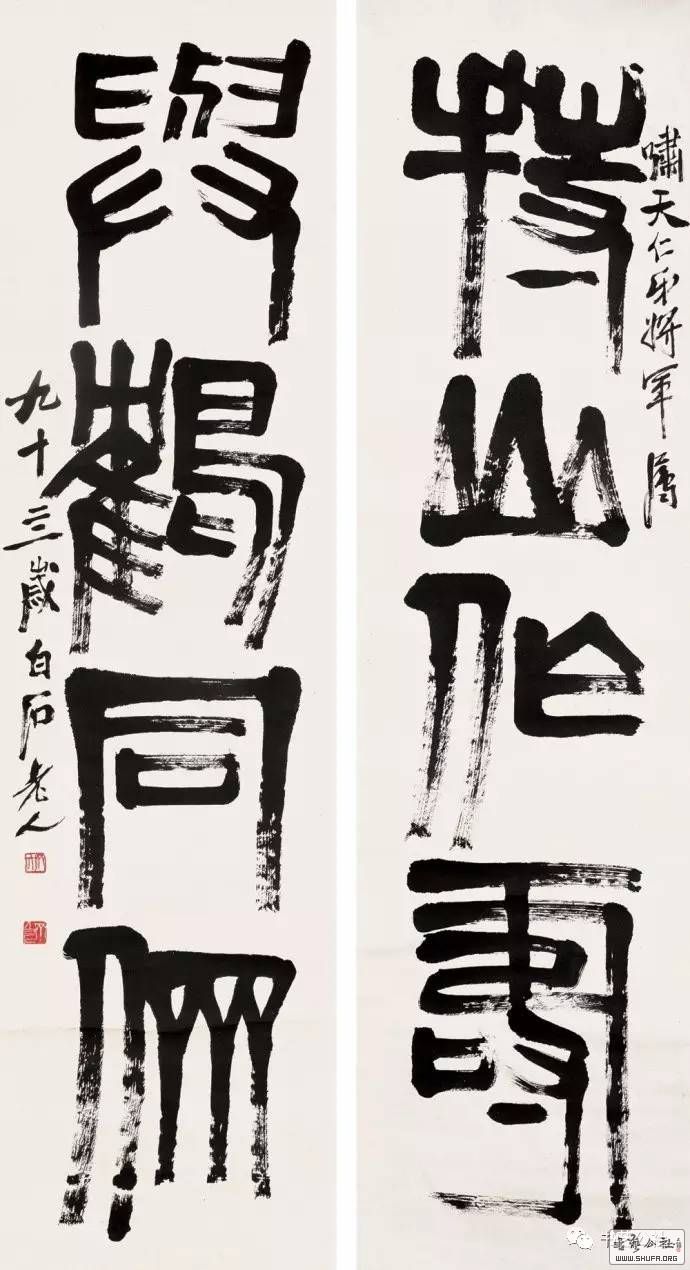 嘯天仁弟將軍屬
持山作壽
與鶴同儕
九十三歲白石老人
書藝公社
WWW.SHUFA.ORG